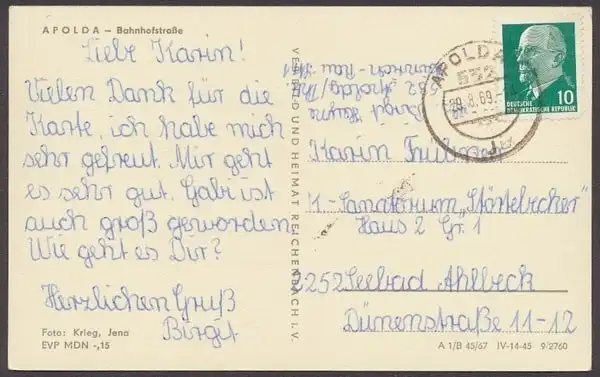 APOLDA – Bahnhofstraße
Liebe Karin!
Vielen Dank für die
Karte, ich habe mich
sehr gefreut. Mir geht
es sehr gut. Gabi ist
auch groß geworden.
Wie geht es Dir?
Herzlichen Gruß
Birgit
Foto: Krieg, Jena
EVP MDN -,15
VERLAG BILD UND HEIMAT REICHENBACH I. V.
Birgit
52 Apolda
APOLDA
532
29.8.69
DEUTSCHE
DEMOKRATISCHE REPUBLIK
10
Karin
Sanatorium „Störtebecher"
Haus 2 Gr. 1
2252 Seebad Ahlbeck
Dünenstraße 11-12
A 1/B 45/67 IV-14-45 9/2760